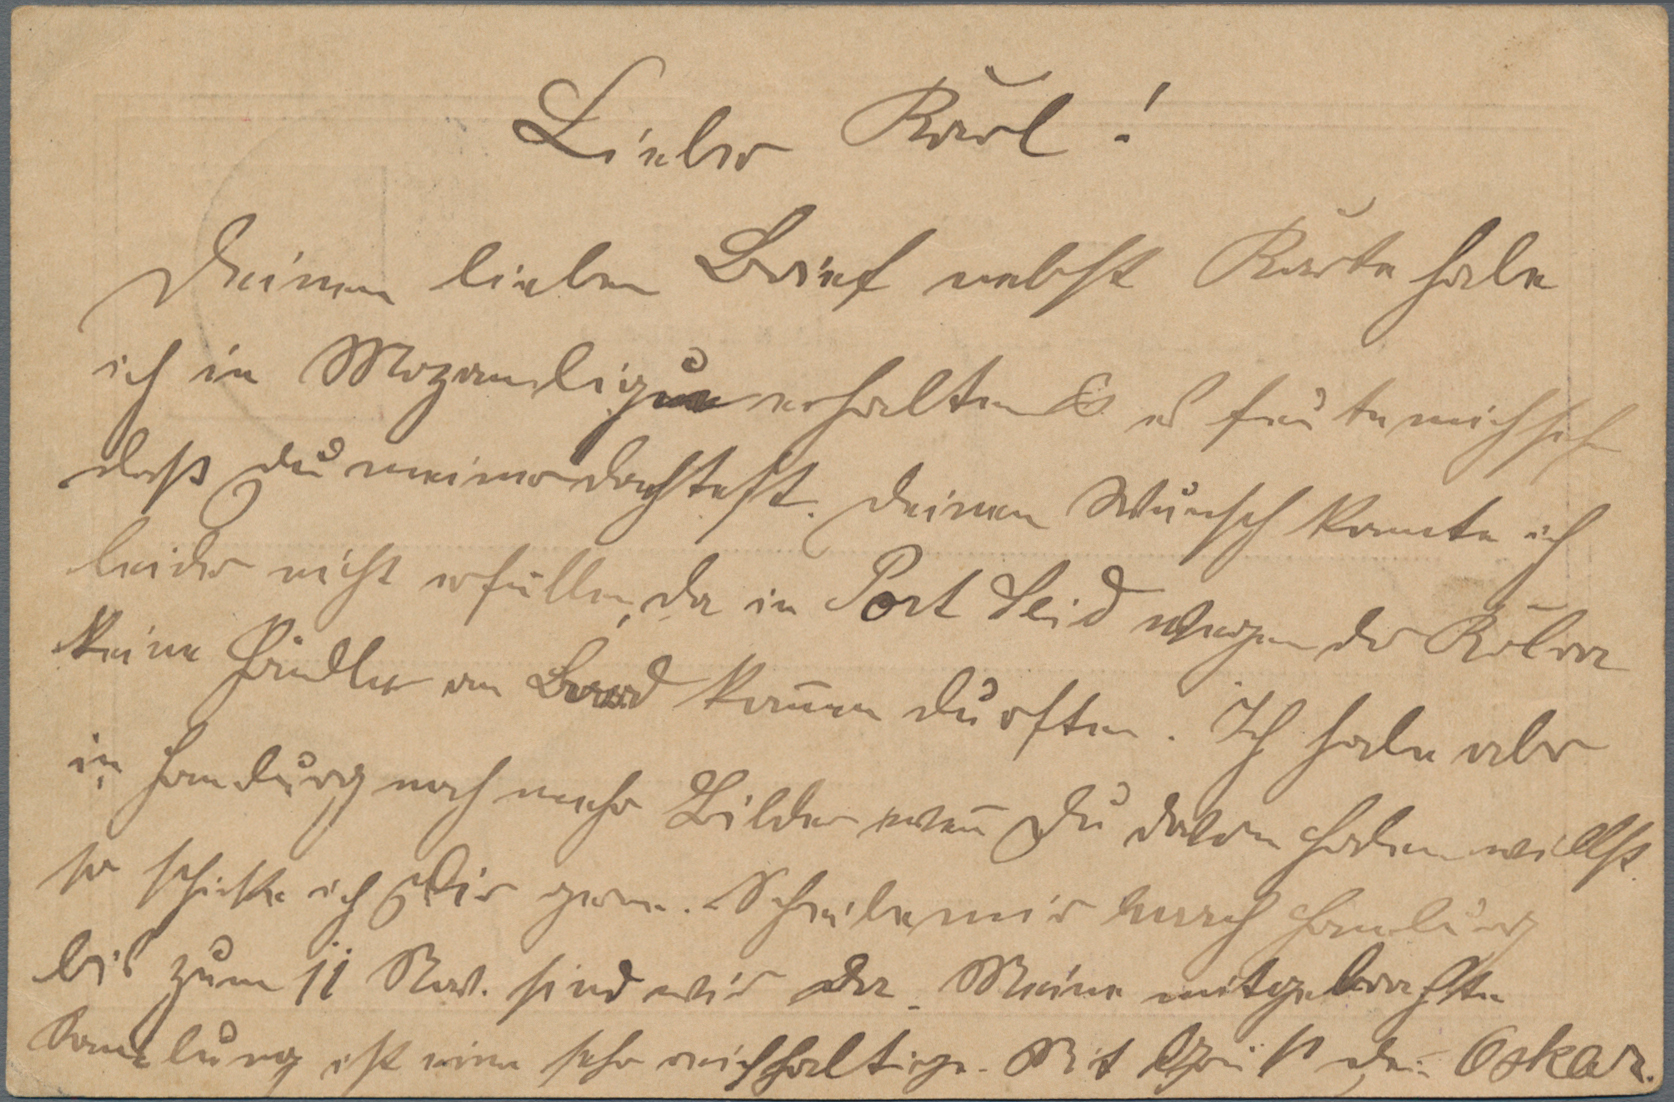 Lieber Karl!
Deinen lieben Brief nebst Karte habe
ich in Mozambique erhalten es freute mich sehr
daß Du meiner dachtest. Deinen Wunsch konnte ich
leider nicht erfüllen, da in Port Seid wegen der Kolera
keine Händler an Bord kom̄en durften. Ich habe aber
in Hamburg noch mehr Bilder wen̄ Du davon haben willst
so schicke ich Dir gern. Schreibe mir nach Hamburg
bis zum 11 Nov. sind wir da. Meine mitgebrachte
Samlung ist eine sehr reichhaltige. Mit Gruß Dein Oskar.